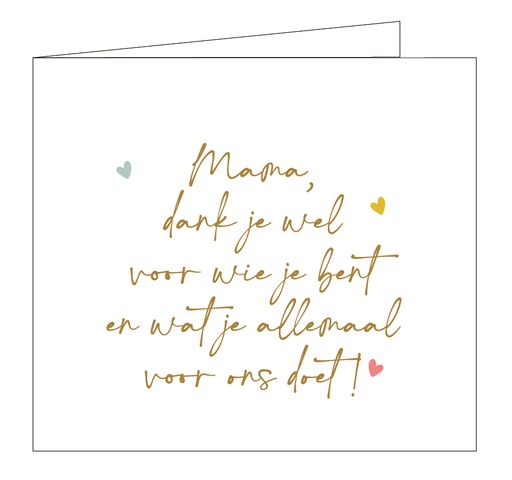 Mama,
dank je wel
voor wie je bent
en wat je allemaal
voor ons doet!